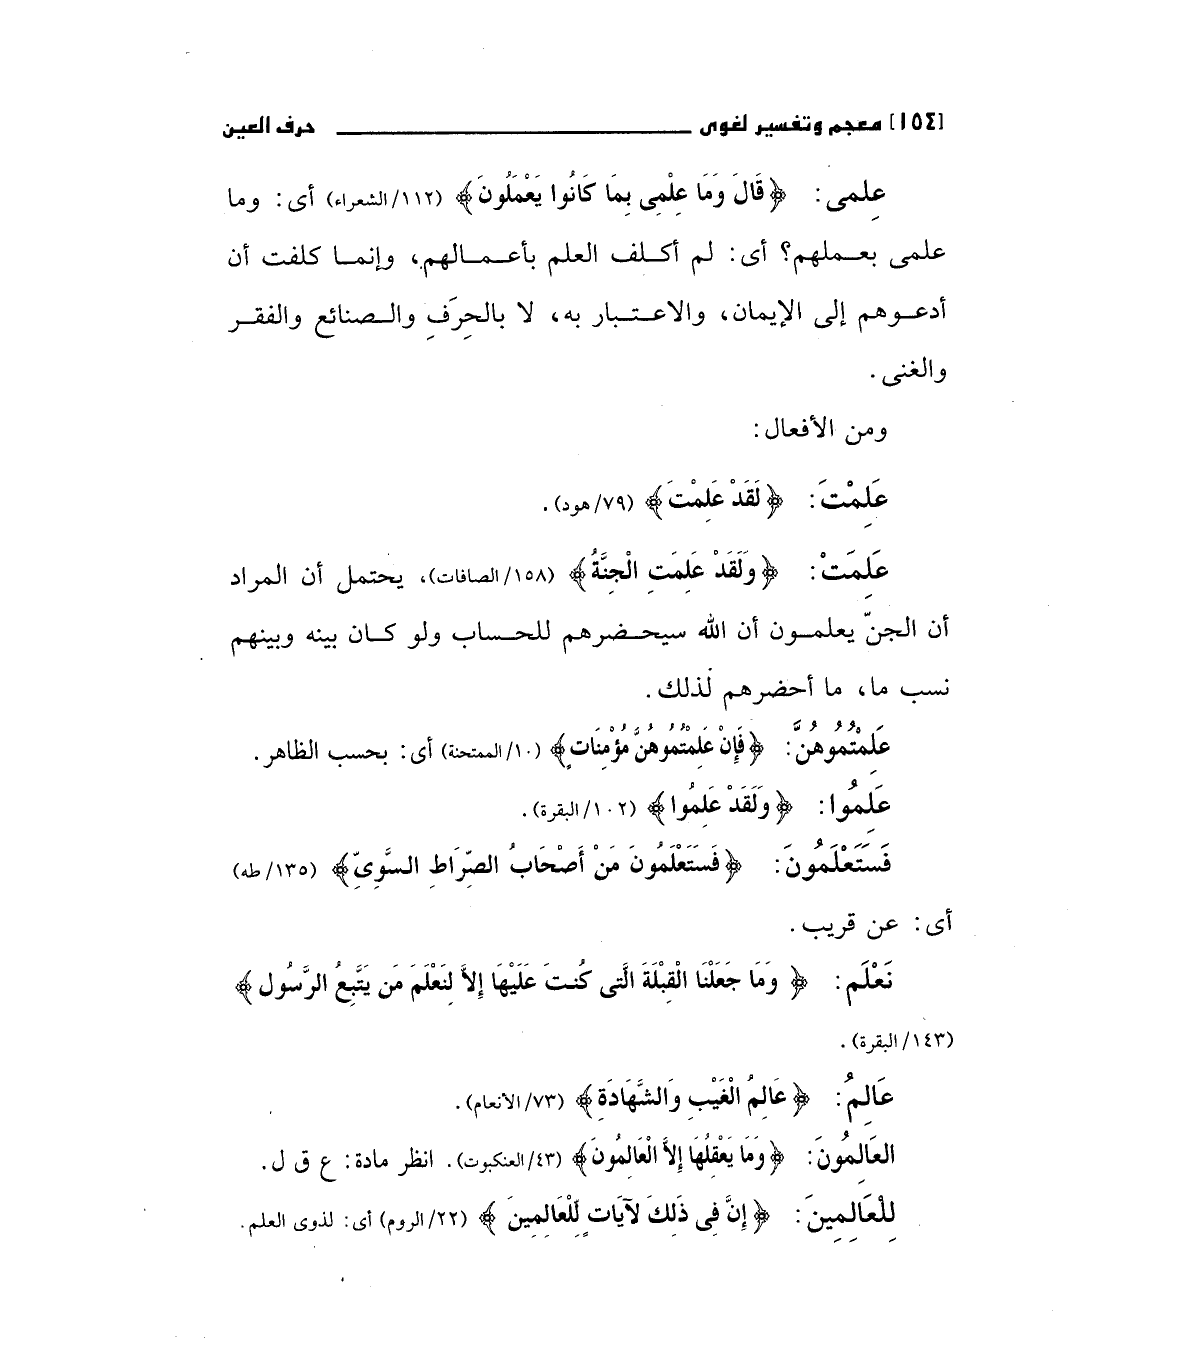 [١٥٤] معجم وتفسير لغوى ــــــــــــ حرف العين
عِلمى: ﴿قَالَ وَمَا عِلْمِى بِمَا كَانُوا يَعْمَلُونَ﴾ (١١٢/الشعراء) أى: وما
علمى بعملهم؟ أى: لم أكلف العلم بأعمالهم، وإنما كلفت أن
أدعوهم إلى الإيمان، والاعتبار به، لا بالحِرَفِ والصنائع والفقر
والغنى.
ومن الأفعال:
عَلِمْتَ: ﴿لَقَدْ عَلِمْتَ﴾ (٧٩/هود).
عَلِمَتْ: ﴿وَلَقَدْ عَلِمَتِ الْجِنَّةُ﴾ (١٥٨/الصافات)، يحتمل أن المراد
أن الجنّ يعلمون أن الله سيحضرهم للحساب ولو كان بينه وبينهم
نسب ما، ما أحضرهم لذلك.
عَلِمْتُمُوهُنَّ: ﴿فَإِنْ عَلِمْتُمُوهُنَّ مُؤْمِنَاتٍ﴾ (١٠/الممتحنة) أى: بحسب الظاهر.
عَلِمُوا: ﴿وَلَقَدْ عَلِمُوا﴾ (١٠٢/البقرة).
فَسَتَعْلَمُونَ: ﴿فَسَتَعْلَمُونَ مَنْ أَصْحَابُ الصِّرَاطِ السَّوِىِّ﴾ (١٣٥/طه)
أى: عن قريب.
نَعْلَم: ﴿وَمَا جَعَلْنَا الْقِبْلَةَ الَّتِى كُنتَ عَلَيْهَا إِلاَّ لِنَعْلَمَ مَن يَتَّبِعُ الرَّسُول﴾
(١٤٣/البقرة).
عَالِمُ: ﴿عَالِمُ الْغَيْبِ وَالشَّهَادَةِ﴾ (٧٣/الأنعام).
العَالِمُونَ: ﴿وَمَا يَعْقِلُهَا إِلاَّ الْعَالِمُونَ﴾ (٤٣/العنكبوت). انظر مادة: ع ق ل.
لِلْعَالِمِينَ: ﴿إِنَّ فِى ذَلِكَ لآيَاتٍ لِّلْعَالِمِينَ﴾ (٢٢/الروم) أى: لذوى العلم.